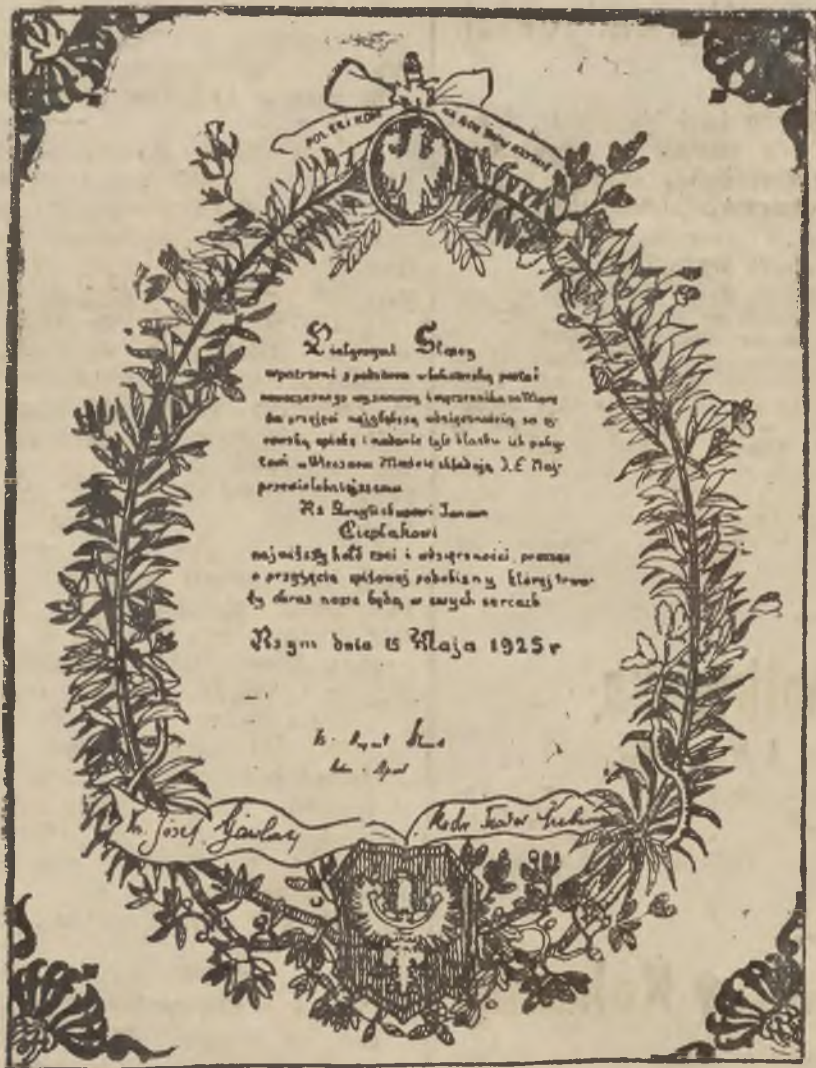 POLSKI ROM NA ROK
Pielgrzymi Śląscy
wpatrzeni z podziwem w bohaterską postać
nowoczesnego wyznawcy i męczennika za Wiarę
do przejęci najgłębszą wdzięcznością za oj-
cowską opiekę i nadanie tyle blasku ich poby-
towi w Wiecznem Mieście składają J. E. Naj-
przewielebniejszemu
Ks Arcybiskupowi Janowi
Cieplakowi
najwyższy hołd czci i wdzięczności, prosząc
o przyjęcie podobizny której trwa-
ły obraz nosić będą w swych sercach
Rzym dnia 15 Maja 1925 r
Ks. Józef Gawlas
Ks dr Teodor